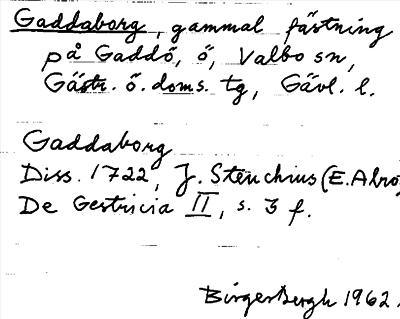 Gaddaborg, gammal fästning
på Gaddö, ö, Valbo sn,
Gästr. ö. doms. tg, Gävl. l.
Gaddaborg
Diss. 1722, J. Stenchius (E. Alro
De Gestricia II, s. 3 f.
Birger Bergh 1962.